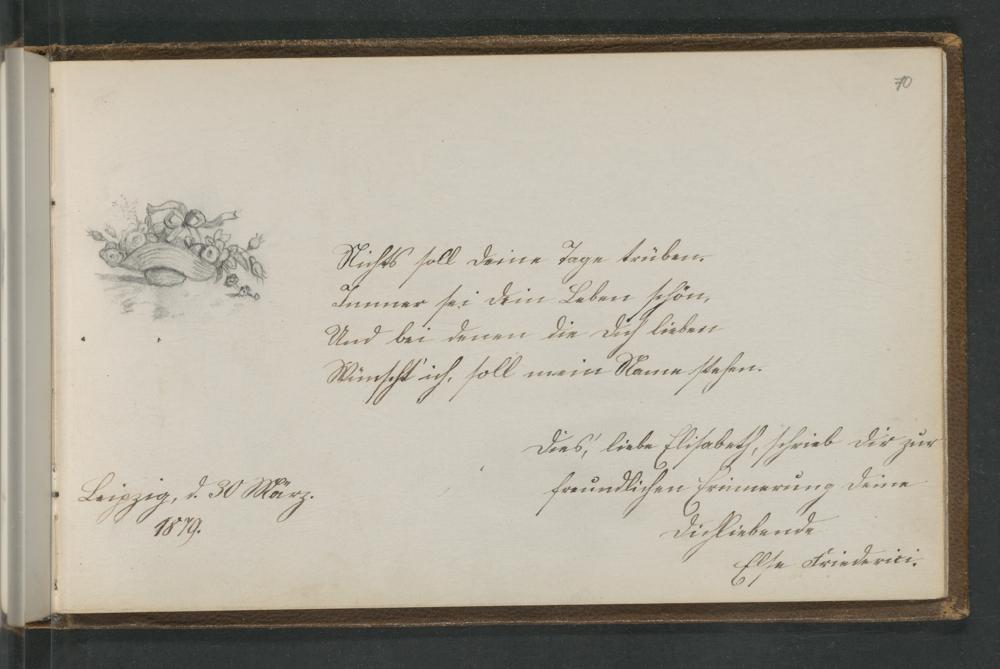 70
Nichts soll deine Tage trüben.
Immer sei dein Leben schön,
Und bei denen die dich lieben
Wünscht' ich, soll mein Name stehen.
Dies, liebe Elisabeth, schrieb dir zur
freundlichen Erinnerung deine
dichliebende
Else Friederici.
Leipzig, d. 30 März.
1879.